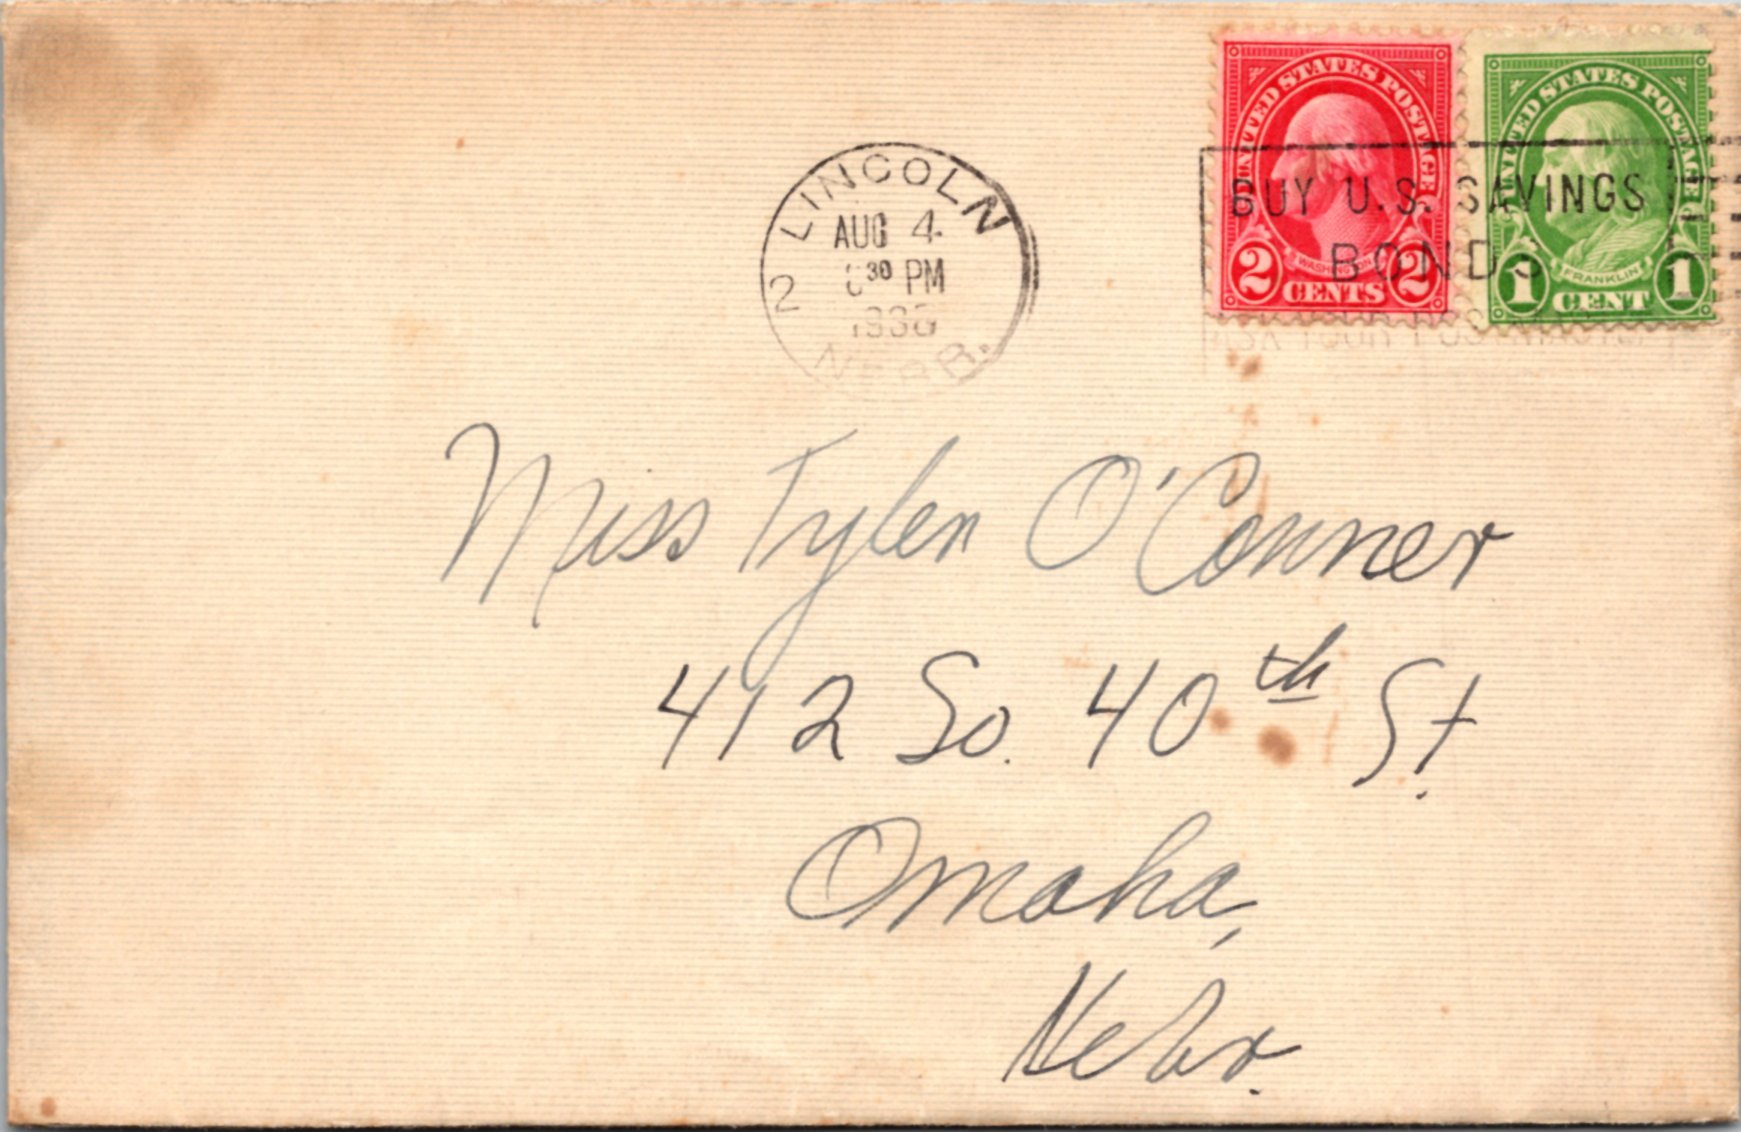 UNITED STATES POSTAGE
WASHINGTON
2 CENTS 2
UNITED STATES POSTAGE
FRANKLIN
1 CENT 1
BUY U.S. SAVINGS
BONDS
ASK YOUR POSTMASTER
LINCOLN
2
AUG 4
30 PM
NEBR.
Miss Tylen O'Conner
412 So. 40th St.
Omaha,
Nebr.